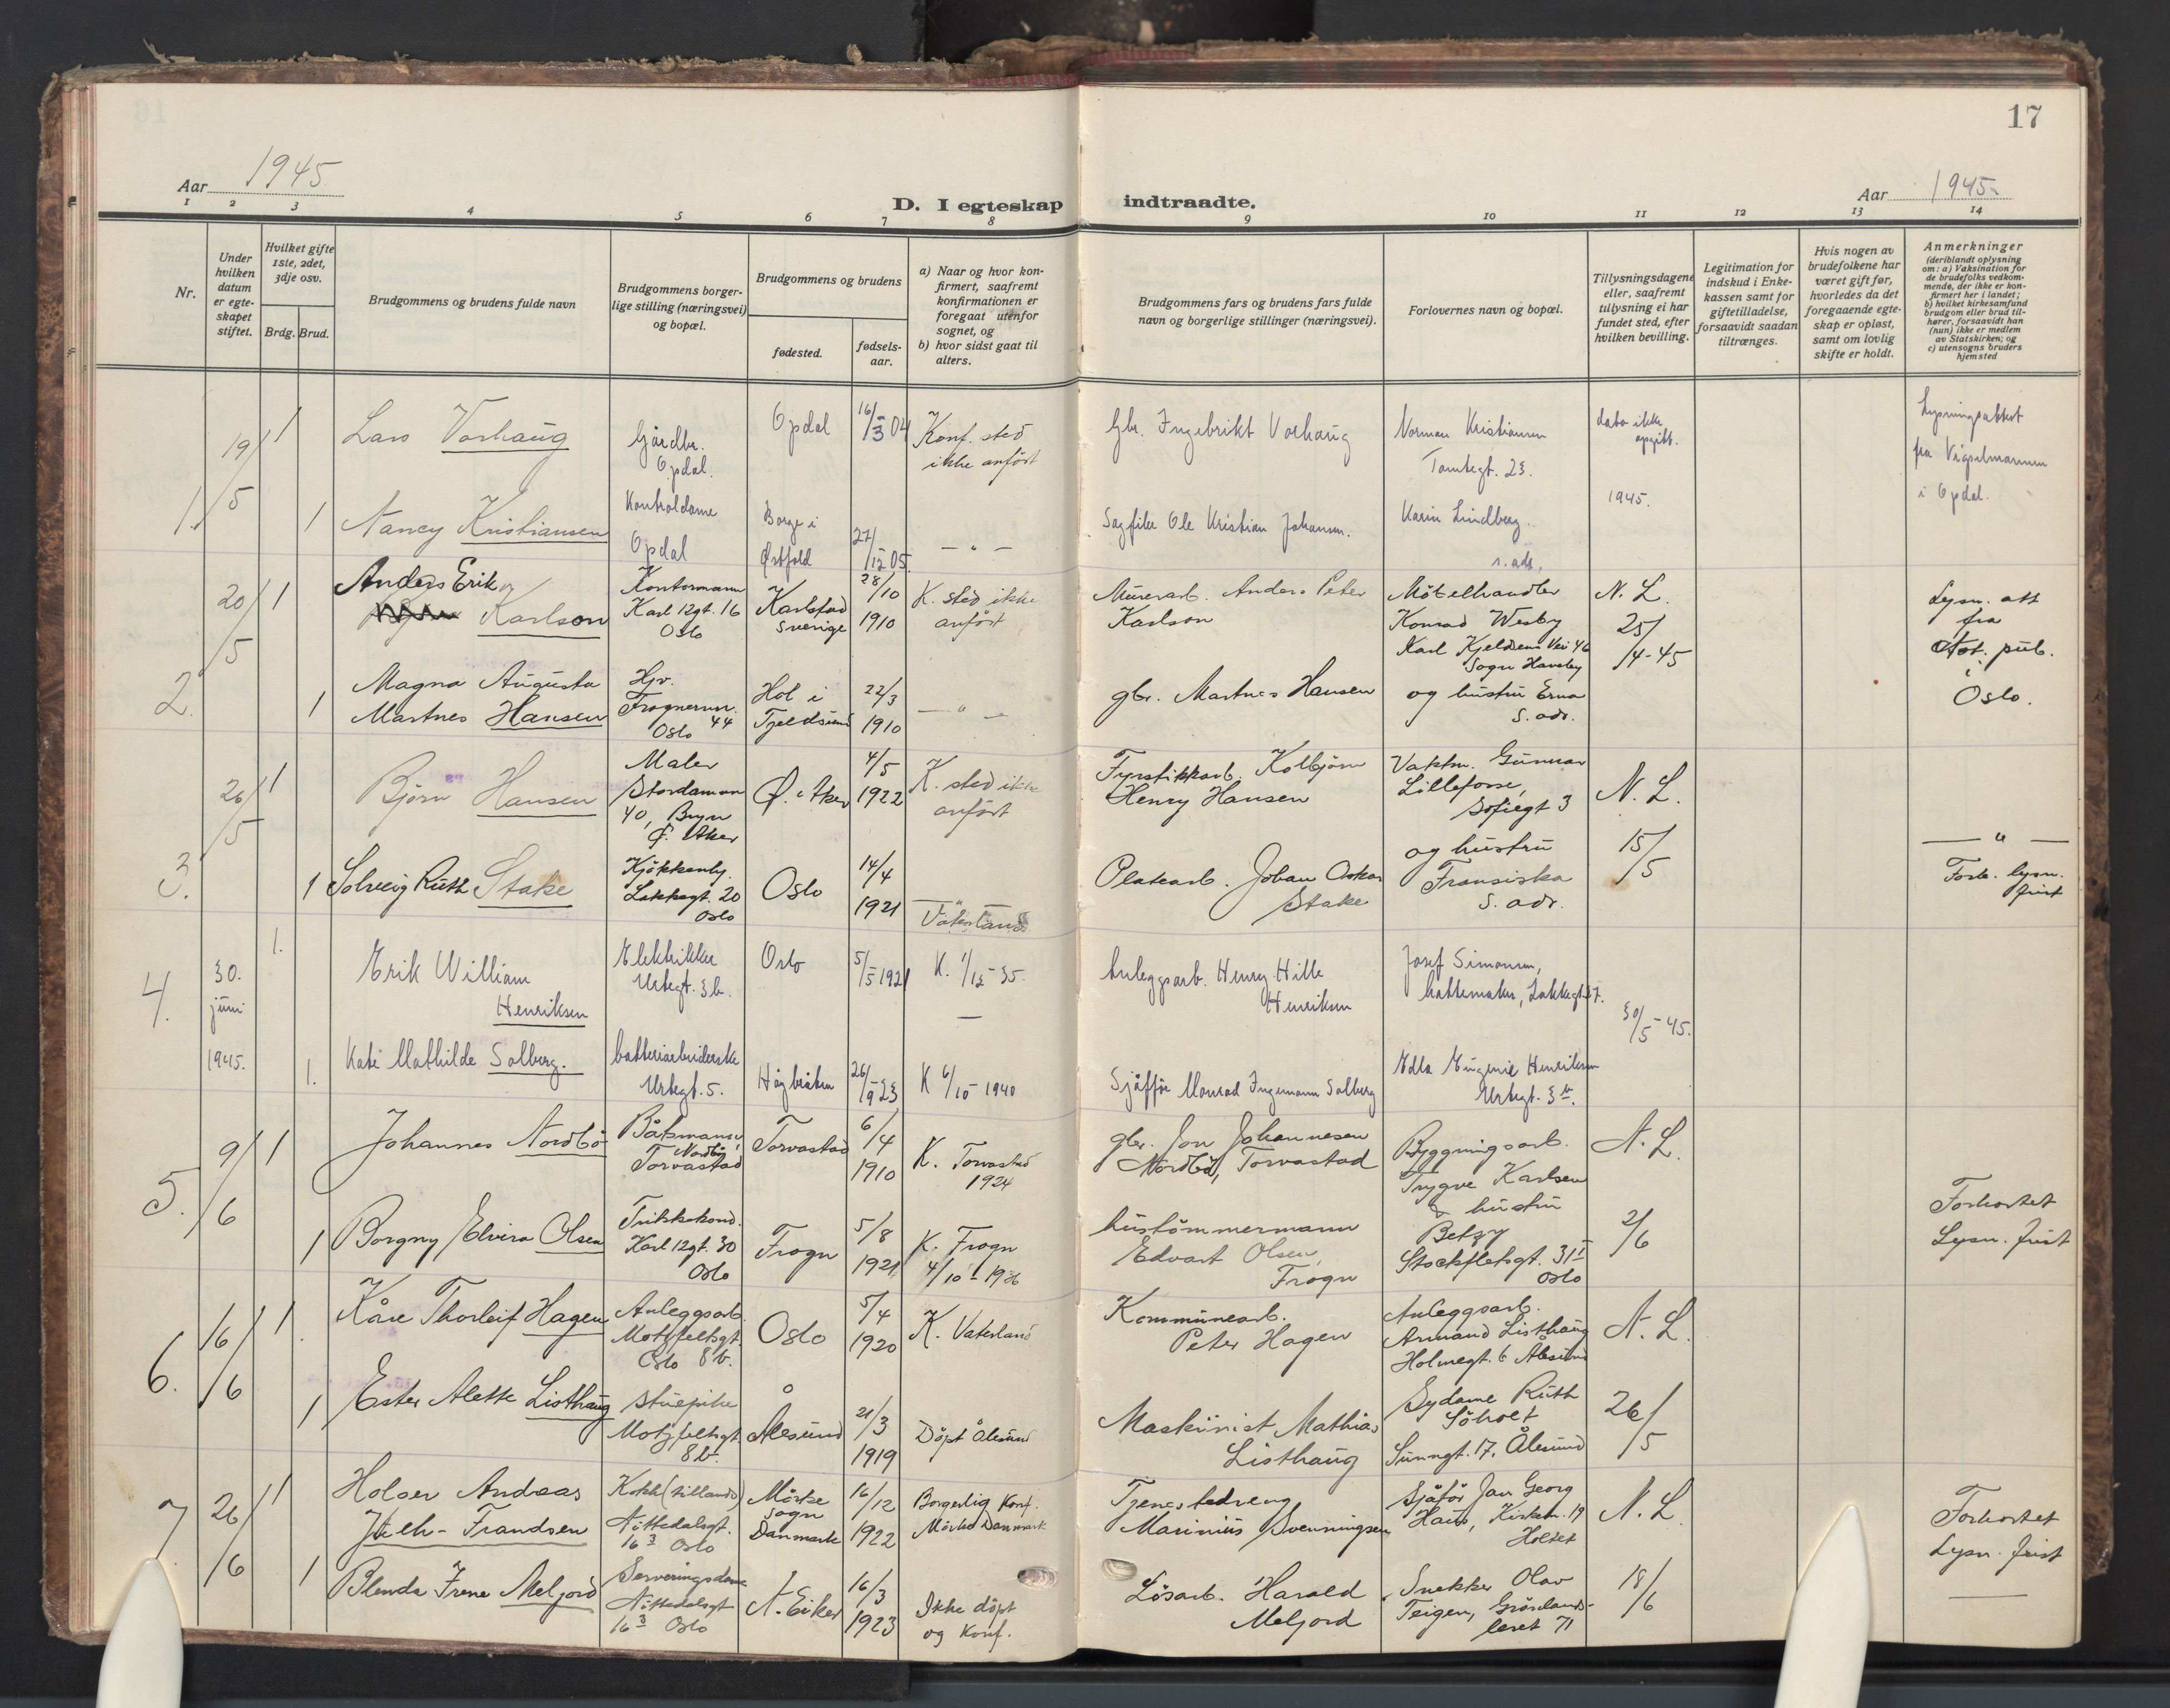 17
Aar 1945
D. I egteskap indtraadte.
Aar 1945.
1 2 3 4 5 6 7 8 9 10 11 12 13 14
Nr.
Under
hvilken
datum
er egte-
skapet
stiftet.
Hvilket gifte
1ste, 2det,
3dje osv.
Brdg. Brud.
Brudgommens og brudens fulde navn
Brudgommens borger-
lige stilling (næringsvei)
og bopæl.
Brudgommens og brudens
fødested.
fødsels-
aar.
a) Naar og hvor kon-
firmert, saafremt
konfirmationen er
foregaat utenfor
sognet, og
b) hvor sidst gaat til
alters.
Brudgommens fars og brudens fars fulde
navn og borgerlige stillinger (næringsvei).
Forlovernes navn og bopæl.
Tillysningsdagene
eller, saafremt
tillysning ei har
fundet sted, efter
hvilken bevilling.
Legitimation for
indskud i Enke-
kassen samt for
giftetilladelse,
forsaavidt saadan
tiltrænges.
Hvis nogen av
brudefolkene har
været gift før,
hvorledes da det
foregaaende egte-
skap er opløst,
samt om lovlig
skifte er holdt.
Anmerkninger
(deriblandt oplysning
om: a) Vaksination for
de brudefolks vedkom-
mende, der ikke er kon-
firmert her i landet;
b) hvilket kirkesamfund
brudgom eller brud til-
hører, forsaavidt han
(hun) ikke er medlem
av Statskirken; og
c) utensogns bruders
hjemsted
1.
19/5
1
Lars Vorhaug
Gårdbr.
Opdal.
Opdal
16/3 04
Konf. sted
ikke anført
Gbr. Ingebrikt Vorhaug
Norman Kristiansen
Tomtegt. 23.
dato ikke
opgitt.
Lysningsattest
fra Vigselmannen
i Opdal.
1
Nancy Kristiansen
Kontroldame
Opdal
Borge i
Østfold
27/12 05.
— " —
Sagfiler Ole Kristian Johansen.
Karin Lindberg.
s. adr.
1945.
2.
20/5
1
Anders Erik
Karlson
Kontormann
Karl 12gt. 16
Oslo
Karlstad
Sverige
28/10
1910
K. sted ikke
anført
Murerarb. Anders Peter
Karlson
Møbelhandler
Konrad Wesby
Karl Kjeldsens Vei 46
Sogn Haveby
N. L.
25/4-45
Lysn. att
fra
Not. pub.
i
Oslo.
1
Magna Augusta
Martnes Hansen
Hjv.
Frognervn.
44
Oslo
Hol i
Tjeldsund
22/3
1910
— " —
gbr. Martnes Hansen
og hustru Erna
s. adr.
3.
26/5
1
Bjørn Hansen
Maler
Stordamvn
40, Bryn
Ø. Aker
Ø. Aker
4/5
1922
K. sted ikke
anført
Fyrstikkarb. Kolbjørn
Henry Hansen
Vaktm. Gunnar
Lilleforse,
Sofiegt 3
N. L.
— " —
1
Solveig Ruth Stake
Kjøkkenhj.
Lakkegt. 20
Oslo
Oslo
14/4
1921
— " —
Vaterland
Platearb. Johan Oskar
Stake
og hustru
Fransiska
s. adr.
15/5
Fork. lysn.
frist
4.
30.
juni
1945.
1.
Erik William
Henriksen
Elektrikker
Urtegt. 3b.
Oslo
5/5 1921
K. 1/12-35.
—
Anleggsarb. Henry Hille
Henriksen
Josef Simonsen,
hattemaker, Lakkegt 57.
30/5-45.
1.
Kate Mathilde Solberg.
batteriarbeiderske
Urtegt. 5.
26/9 23
K 6/10 1940
Sjåffør Monrad Ingemann Solberg
Edla Eugenie Henriksen
Urtegt. 3b.
5.
9/6
1
Johannes Nordbø
Båtsmann,
Nordbø,
Torvastad
Torvastad
6/4
1910
K. Torvastad
1924
gbr. Jon Johannesen
Nordbø, Torvastad
Byggningsarb.
Trygve Karlsen
& hustru
N. L.
1
Borgny Elvira Olsen
Trikkekond.
Karl 12gt. 30
Oslo
Frogn
5/8
1921
K. Frogn
4/10-1936
hustømmermann
Edvart Olsen,
Frogn
Betzy
Stockfletsgt. 31 I
Oslo
2/6
Forkortet
Lysn. frist
6.
16/6
1
Kåre Thorleif Hagen
Anleggsarb.
Motzfeltsgt.
Oslo 8b.
Oslo
5/4
1920
K. Vaterland
Kommunearb.
Peter Hagen
Anleggsarb.
Armand Listhaug
Holmegt. 6 Ålesund
N. L.
1
Ester Alette Listhaug
Stuepike
Motzfeltsgt
8b.
Ålesund
21/3
1919
Døpt Ålesund
Maskinist Mathias
Listhaug
Sydame Ruth
Søholt
Sunngt. 17, Ålesund
26/5
7.
26/6
1
Holger Andreas
Juelh-Frandsen
Kokk (tillands)
Nittedalsgt.
16 3 Oslo
Mørke
sogn
Danmark
16/12
1922
Borgerlig Konf.
Mørke Danmark
Tjenestedreng
Marinius Svenningsen
Sjåfør Jan Georg
Haus, Kirkevn. 19
Holtet
N. L.
1
Blenda Irene Meljord
Serveringsdame
Nittedalsgt
16 3 Oslo
N. Eiker
16/3
1923
Ikke døpt
og Konf.
Løsarb. Harald
Meljord
Snekker Olav
Teigen, Grønlands-
leret 71
18/6
Forkortet
Lysn. frist
—